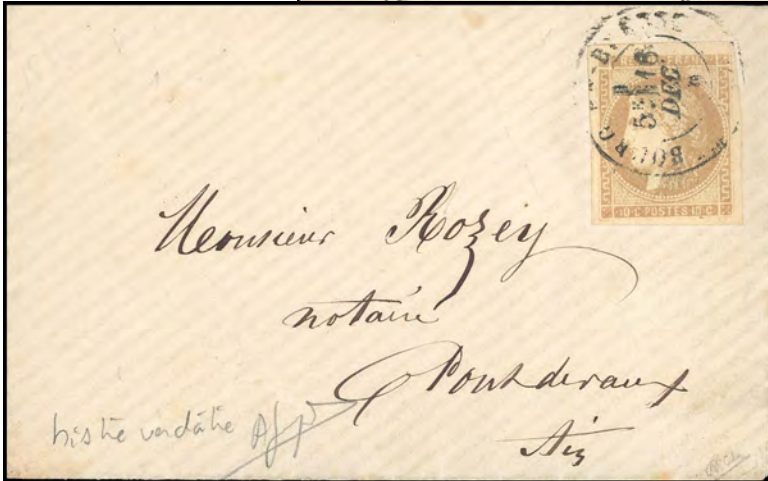 BOURG-EN-BRESSE
5E 16
DEC.
REPUB FRANC
10 C POSTES 10 C
Monsieur Rozey
notaire
Pontdevaux
Ain
bistre verdâtre